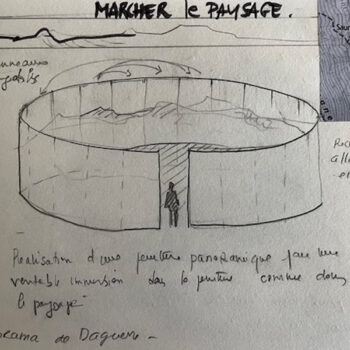 MARCHER le PAYSAGE.
Réalisation d'une peinture panoramique pour une
veritable immersion dans la peinture comme dans
le paysage
de Daguerre -